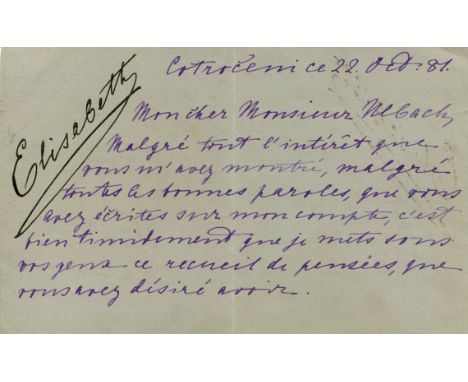 Cotročeni ce 22 Oct. 81.
Elisabeth
Mon cher Monsieur Ulbach,
Malgré tout l'intérêt que
vous m'avez montré, malgré
toutes les bonnes paroles, que vous
avez écrites sur mon compte, c'est
bien timidement que je mets sous
vos yeux ce recueil de pensées, que
vous avez désiré avoir.